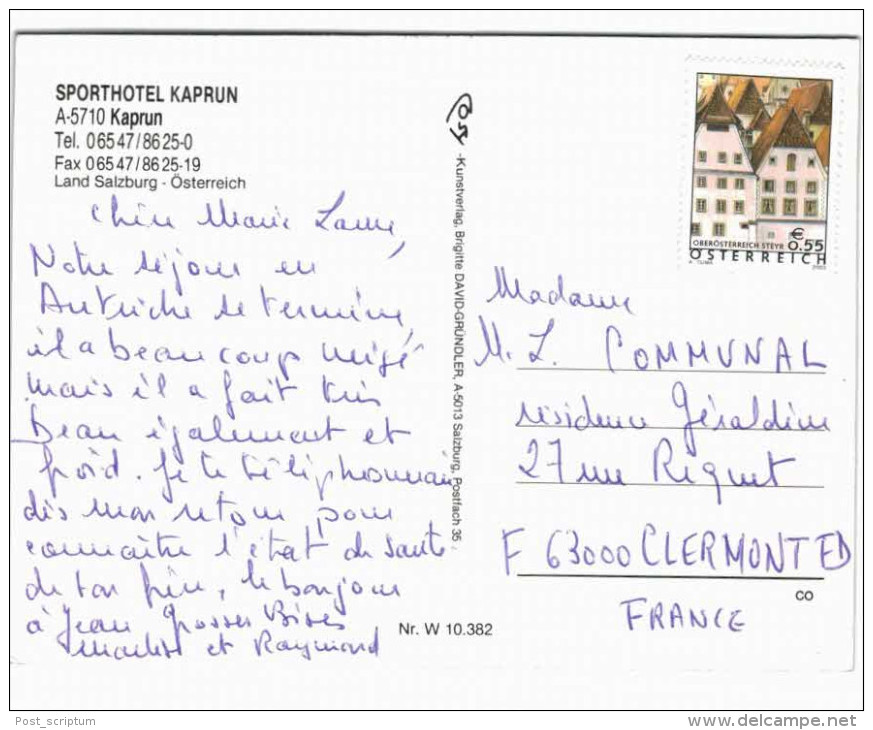 SPORTHOTEL KAPRUN
A-5710 Kaprun
Tel. 06547/8625-0
Fax 06547/8625-19
Land Salzburg - Österreich
Chère Marie Laure,
Notre séjour en
Autriche se termine,
il a beaucoup neigé
mais il a fait très
beau également et
froid. Je te téléphonerai
dès mon retour pour
connaître l'état de santé
de ton père, le bonjour
à Jean Grosses Bises
et Raymond
Nr. W 10.382
-Kunstverlag, Brigitte DAVID-GRÜNDLER, A-5013 Salzburg, Postfach 35
€
0.55
OBERÖSTERREICH STEYR
ÖSTERREICH
A. TUMA 2003
Madame
M. L. COMMUNAL
résidence Géraldine
27 rue Riquet
F 63000 CLERMONT FD
CO
FRANCE
Post_scriptum
delcampe.net